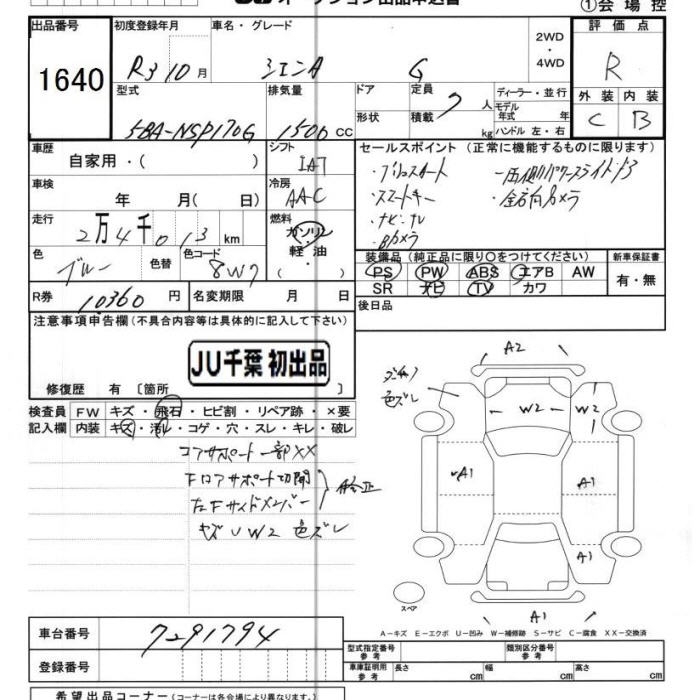 ①会場控
出品番号 初度登録年月 車名・グレード 2WD・4WD 評価点
1640 R3 10月 シエンタ G R
型式 排気量 ドア 定員 ディーラー・並行 外装 内装
5BA-NSP170G 1500cc 形状 積載 7人 kg モデル年式 年 ハンドル 左・右 C B
車歴 シフト セールスポイント (正常に機能するものに限ります)
自家用・( ) IAT
車検 冷房 ・スマートキー ・全方向カメラ
年 月( 日) AAC ・ナビ・テレ
走行 燃料 ・Bカメラ
2万4千013km ガソリン
軽油
色 色替 色コード 装備品 (純正品に限り〇をつけてください) 新車保証書
ブルー 8W7 PS PW ABS エアB AW 有・無
R券 名変期限 月 日 SR ナビ TV カワ
10360円 後日品
注意事項申告欄 (不具合内容等は具体的に記入して下さい)
JU千葉 初出品
修復歴 有〔箇所
A2
色ズレ
W2 W2
A1 A1
A1
A1
検査員 FW キズ・飛石・ヒビ割・リペア跡・×要
記入欄 内装 キズ・汚レ・コゲ・穴・スレ・キレ・破レ
コアサポート一部XX
Fロアサポート切開
左Fサイドメンバー
キズUW2 色ズレ
スペア
A-キズ E-エクボ U-凹み W-補修跡 S-サビ C-腐食 XX-交換済
車台番号 7291794
登録番号
型式指定番号 参考 類別区分番号 参考
車庫証明用 参考 長さ cm 幅 cm 高さ cm
希望出品コーナー (コーナーは各会場により異なります。)